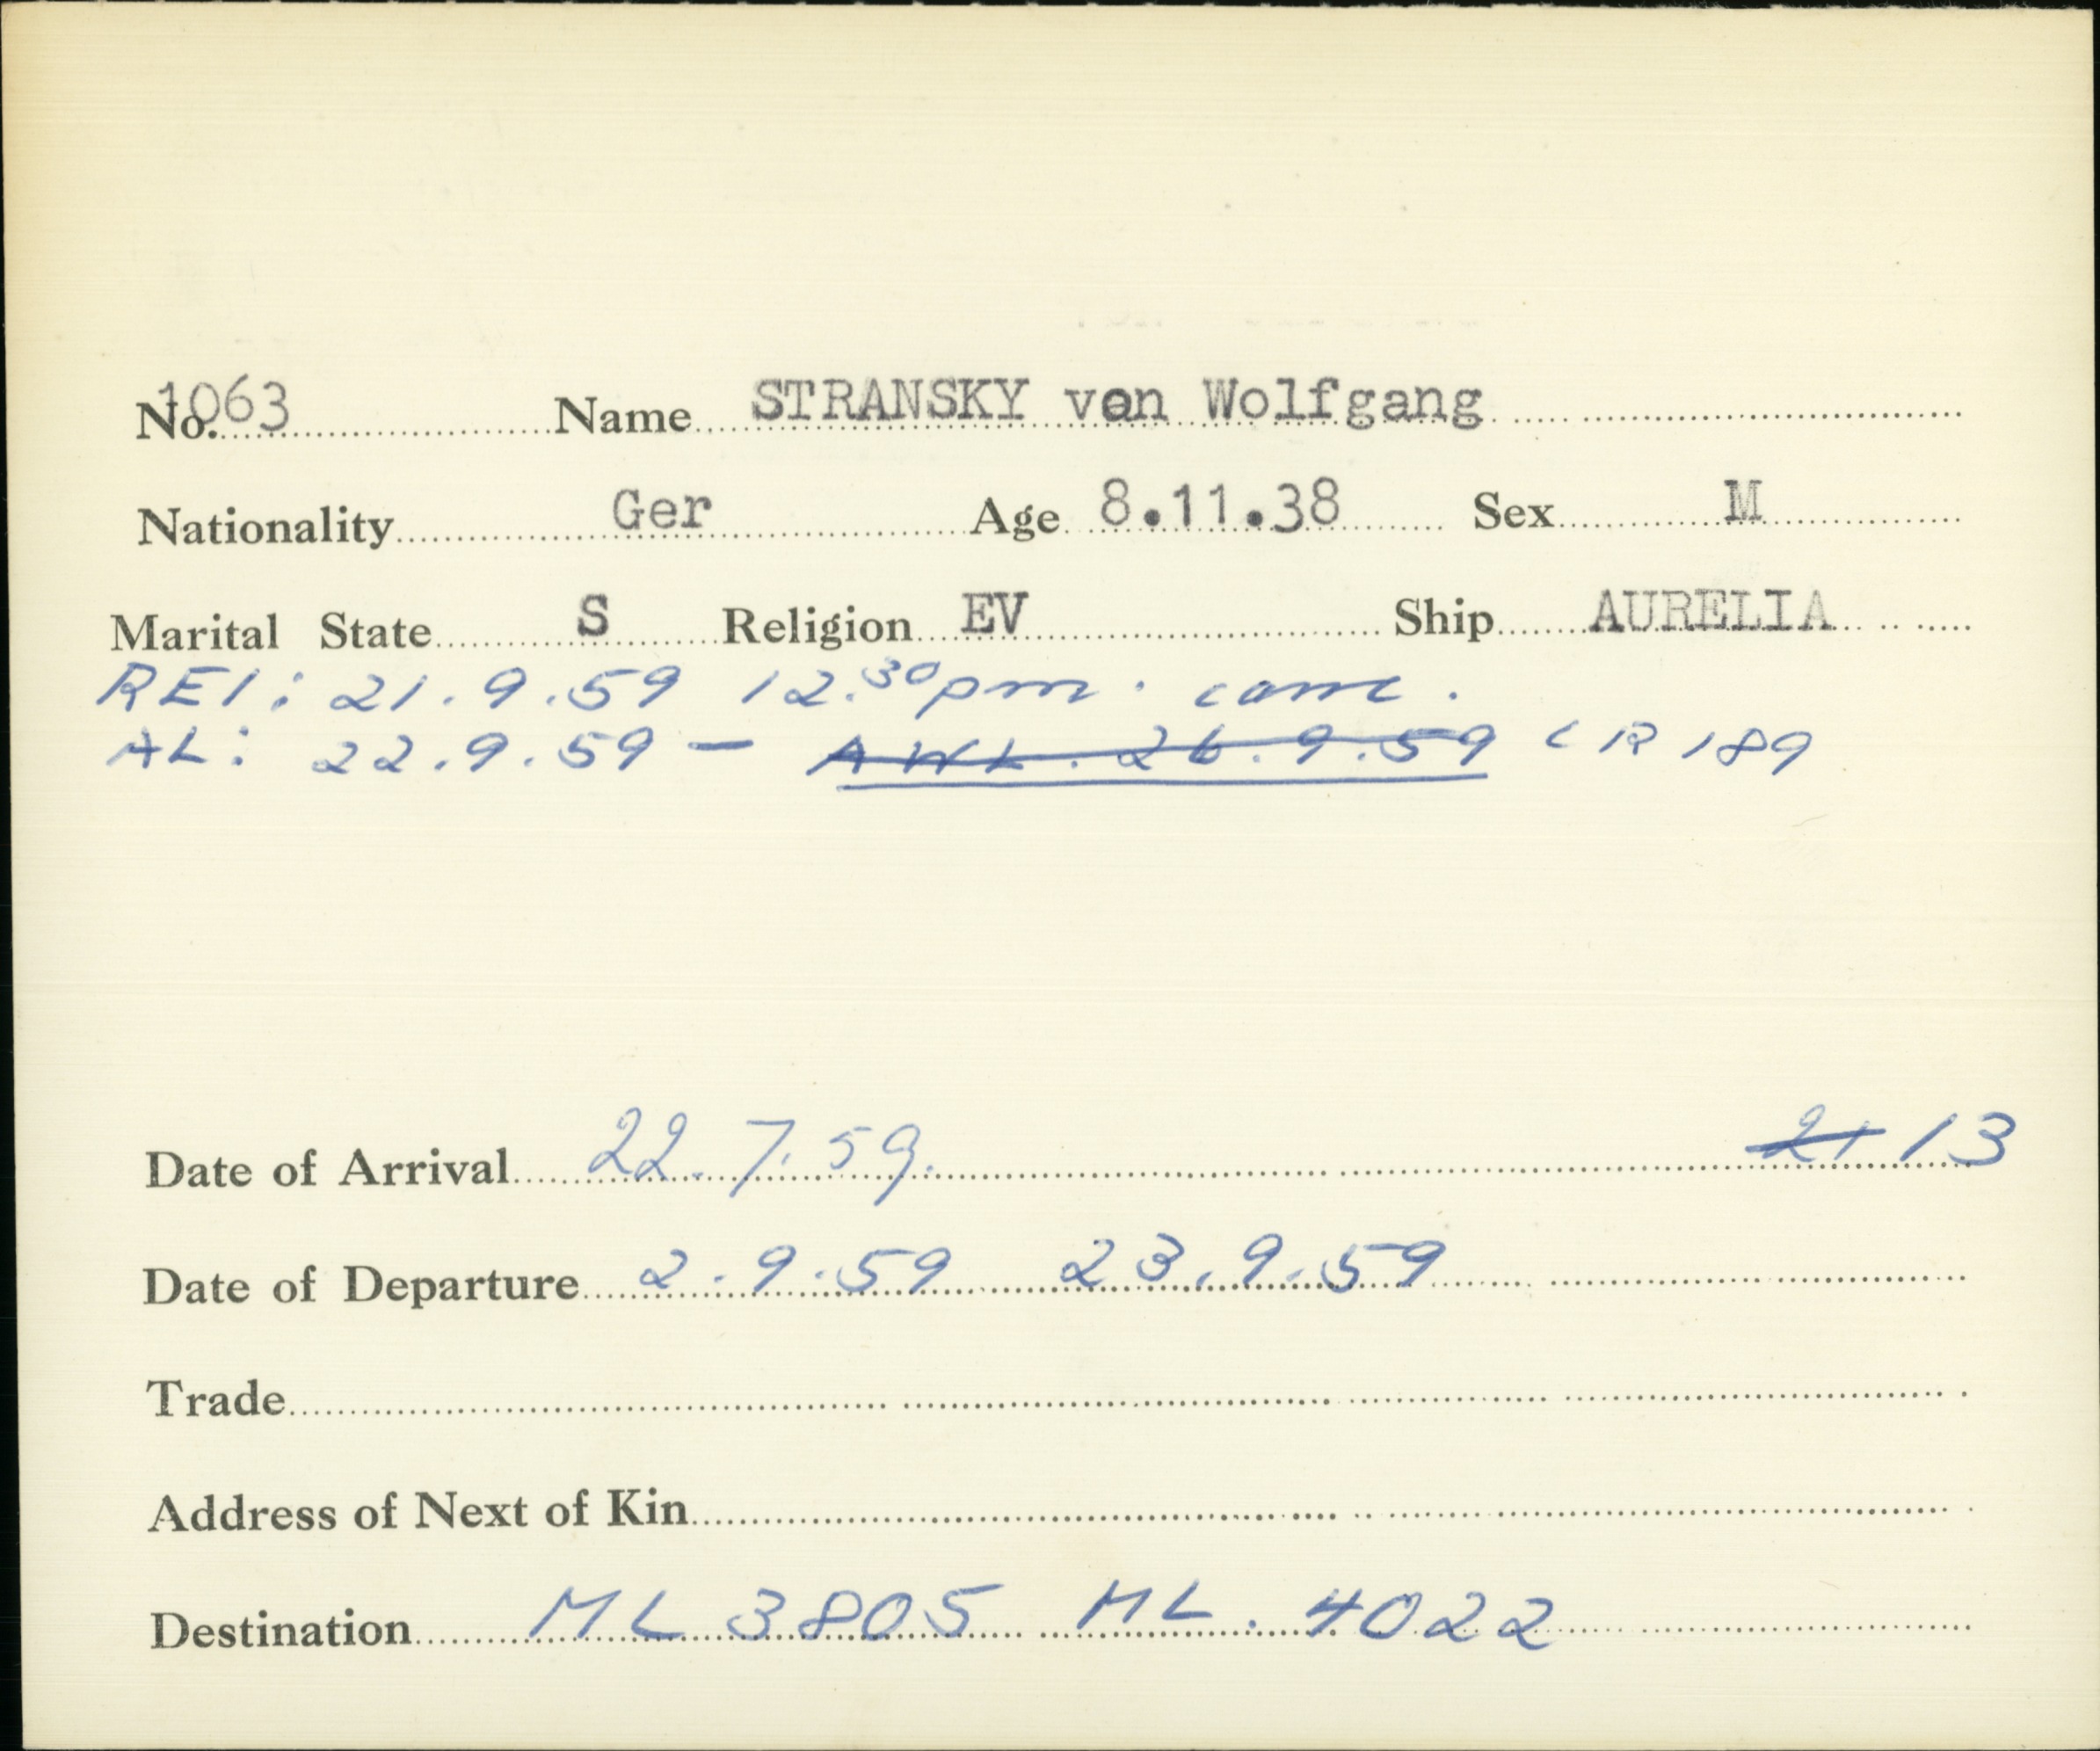 No. 1063 Name STRANSKY von Wolfgang
Nationality Ger Age 8.11.38 Sex M
Marital State S Religion EV Ship AURELIA
REI: 21.9.59 12.30 pm. came.
AL: 22.9.59 - AWL. 26.9.59 CR 189
Date of Arrival 22.7.59. 21 13
Date of Departure 2.9.59 23.9.59
Trade
Address of Next of Kin
Destination ML 3805 ML. 4022